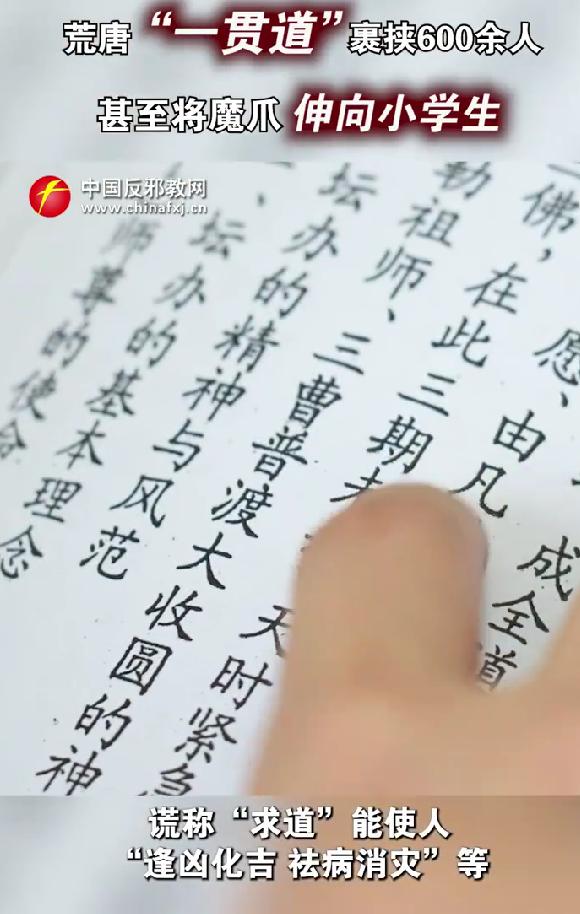 荒唐“一贯道”裹挟600余人
甚至将魔爪 伸向小学生
中国反邪教网
www.chinafxj.cn
成全道
愿、由凡
佛，在此三期
天时紧急
勒祖师、三曹普渡大收圆的神
坛办的精神与风范
坛办的基本理念
师尊的使命
谎称“求道”能使人
“逢凶化吉 祛病消灾”等